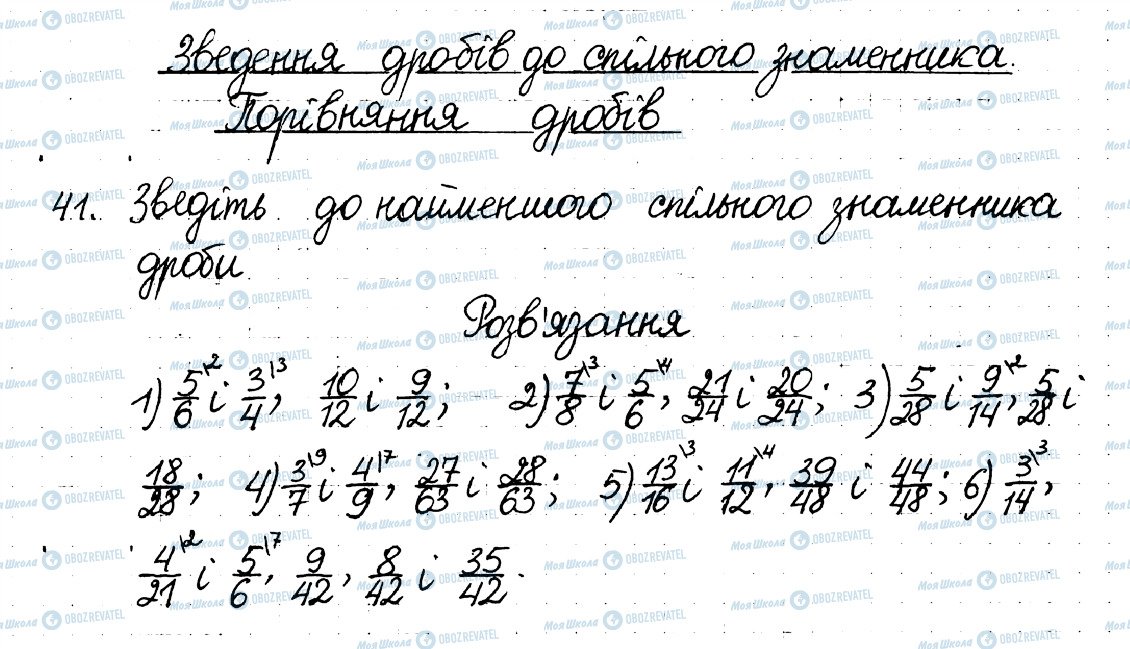 Зведення дробів до спільного знаменника.
Порівняння дробів
41. Зведіть до найменшого спільного знаменника
дроби.
Розв'язання
1) 5/6\2 і 3/4\3, 10/12 і 9/12; 2) 7/8\3 і 5/6\4, 21/24 і 20/24; 3) 5/28 і 9/14\2, 5/28 і
18/28; 4) 3/7\9 і 4/9\7, 27/63 і 28/63; 5) 13/16\3 і 11/12\4, 39/48 і 44/48; 6) 3/14\3,
4/21\2 і 5/6\7, 9/42, 8/42 і 35/42.
МояШкола OBOZREVATEL